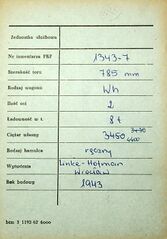 Jednostka służbowa
Nr inwentarza PKP 1343-7
Szerokość toru 785 mm
Rodzaj wagonu Wh
Ilość osi 2
Ładowność w t. 8 t
Ciężar własny 3450 3430 4400
Rodzaj hamulca ręczny
Wytwórnia Linke-Hofman
Wrocław
Rok budowy 1943